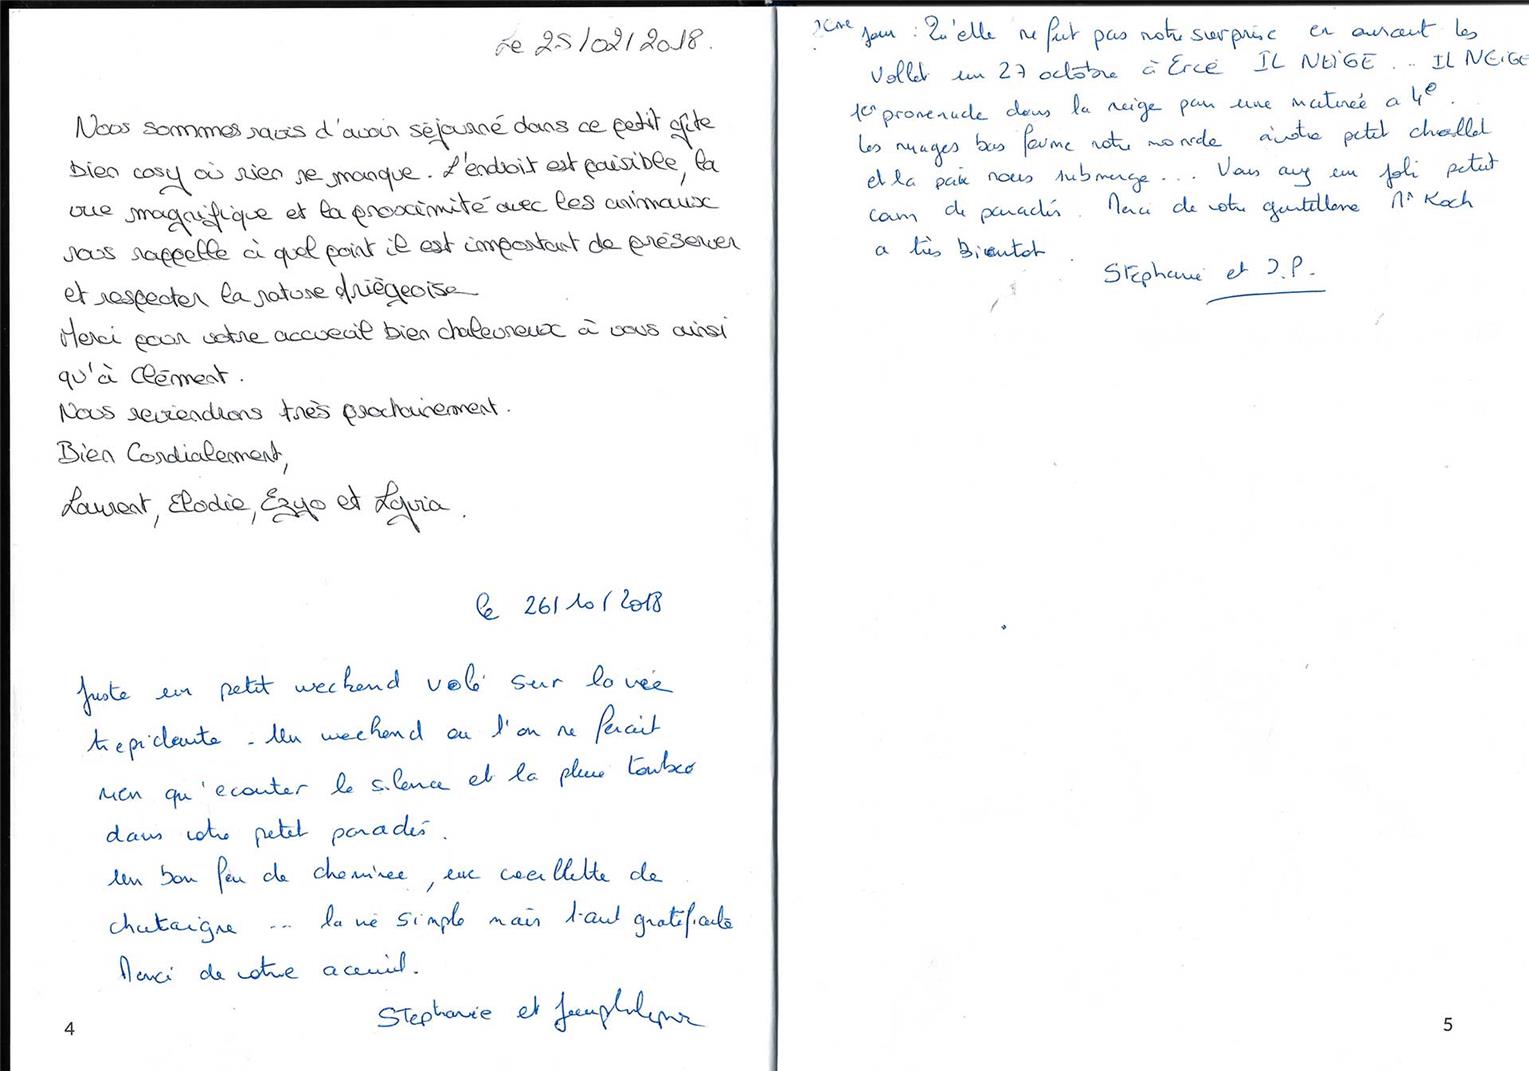 Le 25/02/2018.
Nous sommes ravis d'avoir séjourné dans ce petit gîte
bien cosy où rien ne manque. L'endroit est paisible, la
vue magnifique et la proximité avec les animaux
nous rappelle à quel point il est important de préserver
et respecter la nature Ariègeoise
Merci pour votre accueil bien chaleureux à vous ainsi
qu'à Clément.
Nous reviendrons très prochainement.
Bien Cordialement,
Laurent, Elodie, Enyo et
le 26/10/2018
Juste un petit weekend volé sur la vie
trepidante - Un weekend ou l'on ne ferait
rien qu'ecouter le silence et la pluie tomber
dans votre petit paradis.
Un bon feu de cheminee, une ceuillette de
chataigne ... la vie simple mais tant gratifiante
Merci de votre aceuil.
Stephanie et Jeanphilippe
4
2eme jour : Qu'elle ne fut pas notre surprise en ouvrant les
vollet un 27 octobre à Ercé IL NEIGE .. IL NEIGE
1er promenade dans la neige par une matineé a 4°.
les nuages bas ferme notre monde à votre petit challet
et la paix nous submerge... Vous avez un joli petit
coin de paradis. Merci de votre gentillesse Mr Koch
a très Bientot.
Stephanie et J.P.
5